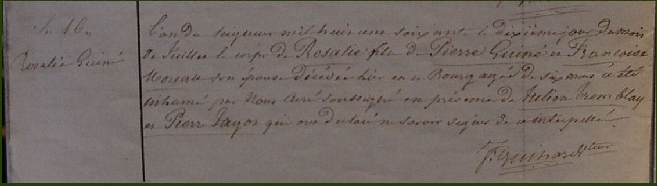 Se 16e
Rosalie Guiné
L'an du seigneur mil huit cent soixante le dixième jour du mois
de Juillet le corps de Rosalie fle de Pierre Guiné et Françoise
Moreau son épouse décédée hier en ce Bourg agée de six mois a été
inhumé par Nous curé soussigné en présence de Julien Tremblay
et Pierre qui ont déclaré ne savoir signer de ce interpellé